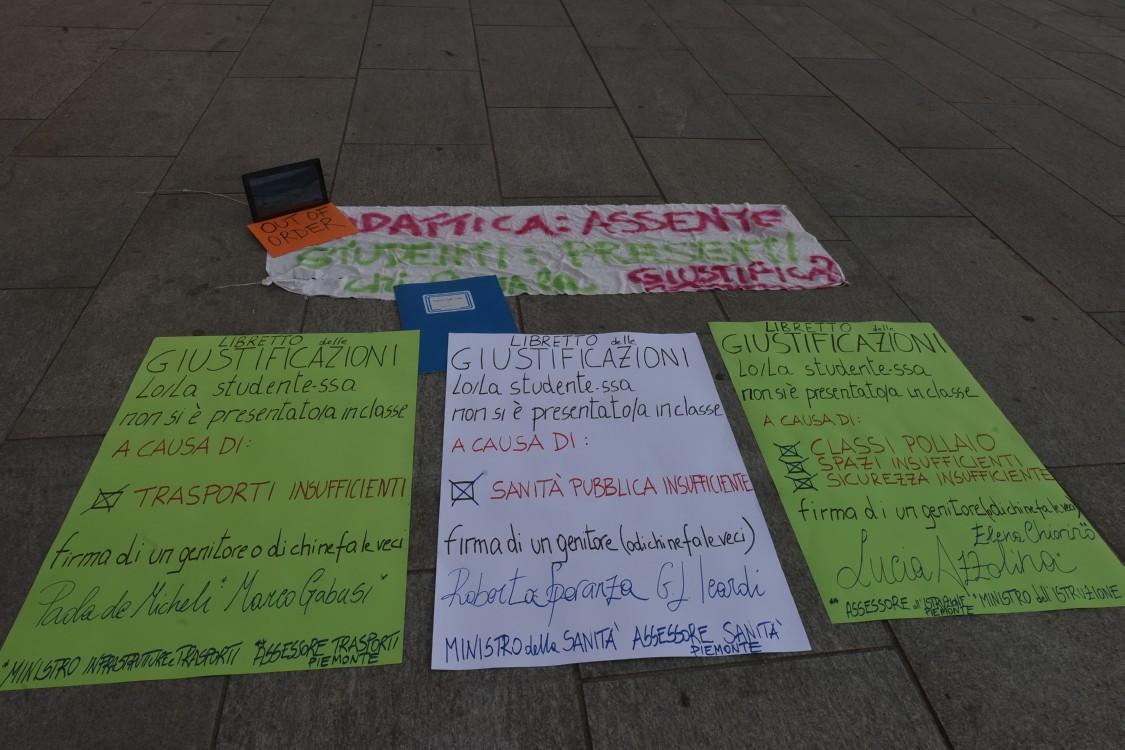 OUT OF
ORDER
DATTICA: ASSENTE
STUDENTI: PRESENTI
chi
GIUSTIFICA?
LIBRETTO delle
GIUSTIFICAZIONI
Lo/La studente-ssa
non si è presentato/a in classe
A CAUSA DI:
TRASPORTI INSUFFICIENTI
firma di un genitore o di chi ne fa le veci
Paola de Micheli* Marco Gabusi**
*MINISTRO INFRASTRUTTURE e TRASPORTI **ASSESSORE TRASPORTI
PIEMONTE
LIBRETTO delle
GIUSTIFICAZIONI
Lo/La studente-ssa
non si è presentato/a in classe
A CAUSA DI:
SANITÀ PUBBLICA INSUFFICIENTE
firma di un genitore (o di chi ne fa le veci)
Roberta Speranza G. L Icardi
MINISTRO della SANITÀ ASSESSORE SANITÀ
PIEMONTE
LIBRETTO delle
GIUSTIFICAZIONI
Lo/La studente-ssa
non si è presentato/a in classe
A CAUSA DI:
CLASSI POLLAIO
SPAZI INSUFFICIENTI
SICUREZZA INSUFFICIENTE
firma di un genitore (o di chi ne fa le veci)
Elena Chiorino
Lucia Azzolina*
**ASSESSORE all'ISTRUZIONE *MINISTRO dell'ISTRUZIONE
PIEMONTE